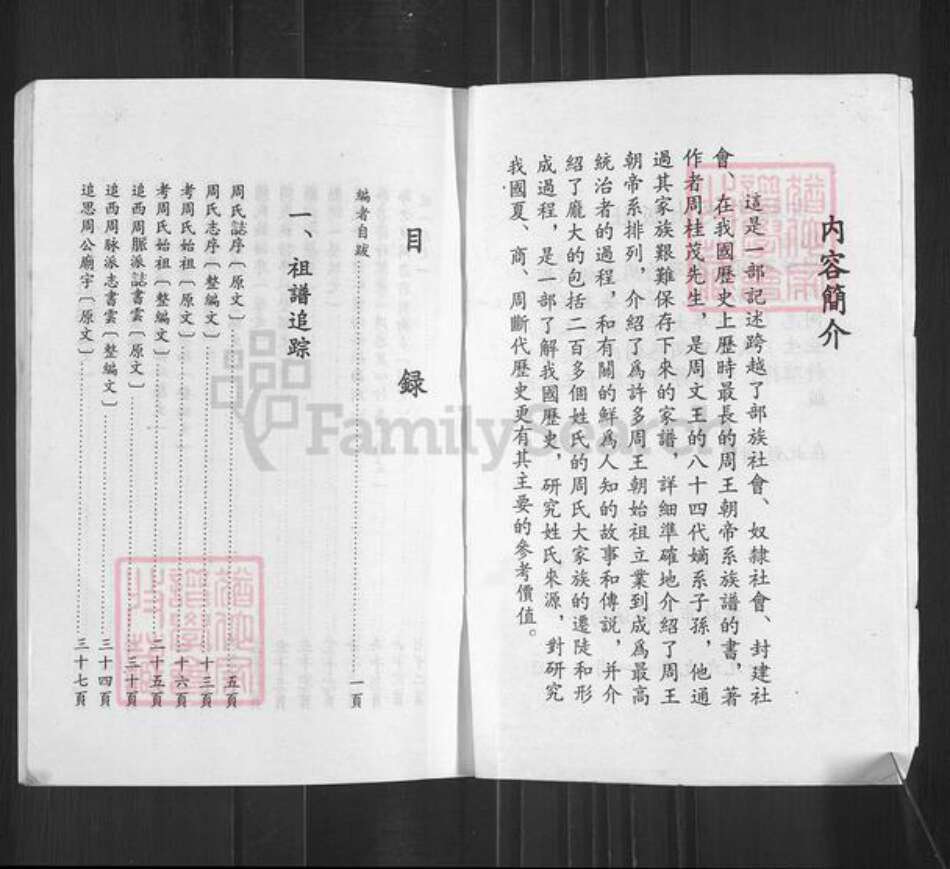 内容簡介
這是一部記述跨越了部族社會、奴隸社會、封建社
會、在我國歷史上歷時最長的周王朝帝系族譜的書，著
作者周桂茂先生，是周文王的八十四代嫡系子孫，他通
過其家族艱難保存下來的家譜，詳細準確地介紹了周王
朝帝系排列，介紹了爲許多周王朝始祖立業到成爲最高
統治者的過程，和有關的鮮爲人知的故事和傳説，并介
紹了龐大的包括二百多個姓氏的周氏大家族的遷陡和形
成過程，是一部了解我國歷史，研究姓氏來源，對研究
我國夏、商、周斷代歷史更有其主要的參考價值。
目 録
編者自跋……一頁
一、祖譜追踪
周氏誌序〔原文〕……五頁
周氏志序〔整編文〕……十三頁
考周氏始祖〔原文〕……十六頁
考周氏始祖〔整編文〕……二十五頁
追西周脈派誌書雲〔原文〕……三十頁
追西周脉派志書雲〔整編文〕……三十四頁
追思周公廟宇〔原文〕……三十七頁
FamilySearch